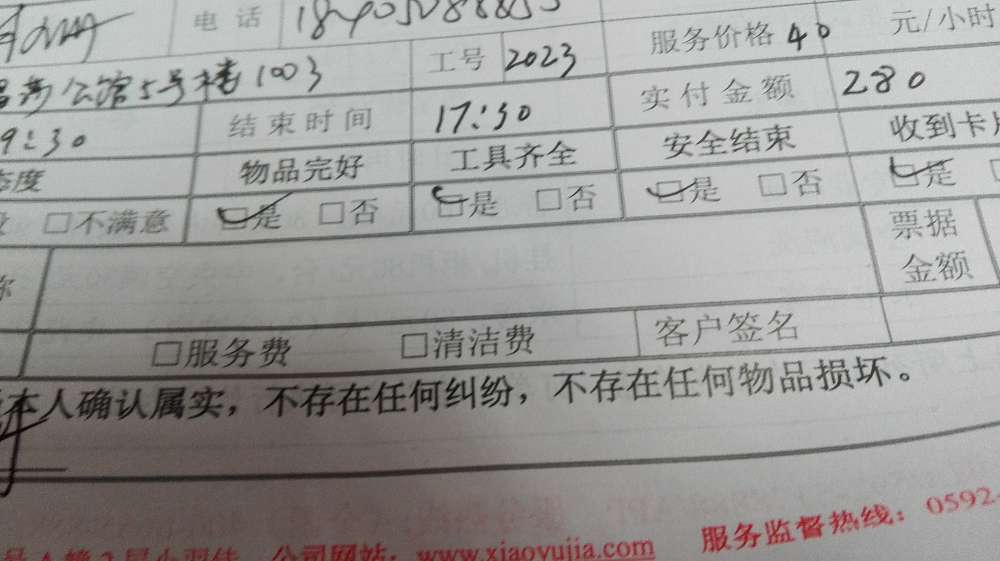 电话
服务价格 40 元/小时
公馆5号楼1003 工号 2023
9:30 结束时间 17:30 实付金额 280
态度 物品完好 工具齐全 安全结束 收到卡片
□不满意 □是 □否 □是 □否 □是 □否 □是
票据
金额
□服务费 □清洁费 客户签名
本人确认属实，不存在任何纠纷，不存在任何物品损坏。
公司网站：www.xiaoyujia.com 服务监督热线：0592-